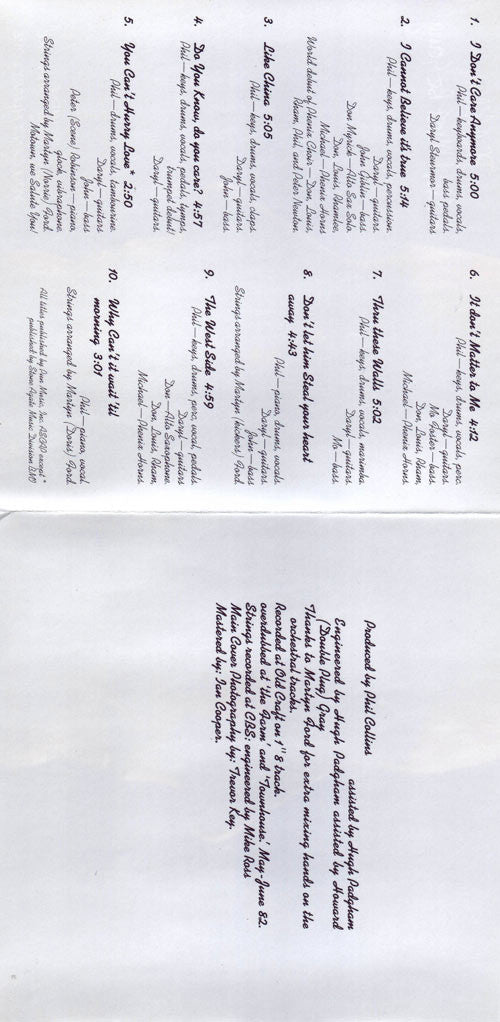 1. I Don't Care Anymore 5:00
Phil—keyboards, drums, vocals,
bass pedals.
Daryl Stuermer—guitars
2. I Cannot Believe it's true 5:14
Phil—keys, drums, vocals, percussion.
Daryl—guitars.
John Giblin—bass.
Don Myrick—Alto Sax Solo.
Don, Louis, Rhamlee,
Michael—Phenix Horns
World debut of Phenix Choir—Don, Louis,
Rham, Phil and Peter Newton.
3. Like China 5:05
Phil—keys, drums, vocals, claps.
Daryl—guitars.
John—bass.
4. Do You Know, do you care? 4:57
Phil—keys, drums, vocals, pedals, tymps,
trumpet debut!
Daryl—guitars.
5. You Can't Hurry Love* 2:50
Phil—drums, vocals, tambourine.
Daryl—guitars.
John—bass
Peter (Scene) Robinson—piano,
glock, vibraphone.
Strings arranged by Martyn (Norrie) Ford.
Motown, we Salute You!
6. It don't Matter to Me 4:12
Phil—keys, drums, vocals, perc.
Daryl—guitars.
Mo Foster—bass.
Don, Louis, Rham,
Michael—Phenix Horns.
7. Thru these Walls 5:02
Phil—keys, drums, vocals, marimba.
Daryl—guitars.
Mo—bass.
8. Don't let him Steal your heart
away 4:43
Phil—piano, drums, vocals.
Daryl—guitars.
John—bass
Strings arranged by Martyn Ford.
9. The West Side 4:59
Phil—keys, drums, perc, vocal, pedals.
Daryl—guitars
Don—Alto Saxophone.
Don, Louis, Rham,
Michael—Phenix Horns.
10. Why Can't it wait 'til
morning 3:01
Phil—piano, vocal.
Strings arranged by Martyn (Doris) Ford.
All titles published by Pun Music, Inc. ASCAP except*
published by Stone Agate Music Division (BMI)
Produced by Phil Collins
assisted by Hugh Padgham
Engineered by Hugh Padgham assisted by Howard
(Double Plug) Gray
Thanks to Martyn Ford for extra mixing hands on the
orchestral tracks.
Recorded at Old Croft on 1" 8 track.
overdubbed at 'the Farm' and 'Townhouse.' May-June 82.
Strings recorded at CBS: engineered by Mike Ross
Main Cover Photography by: Trevor Key.
Mastered by: Ian Cooper.